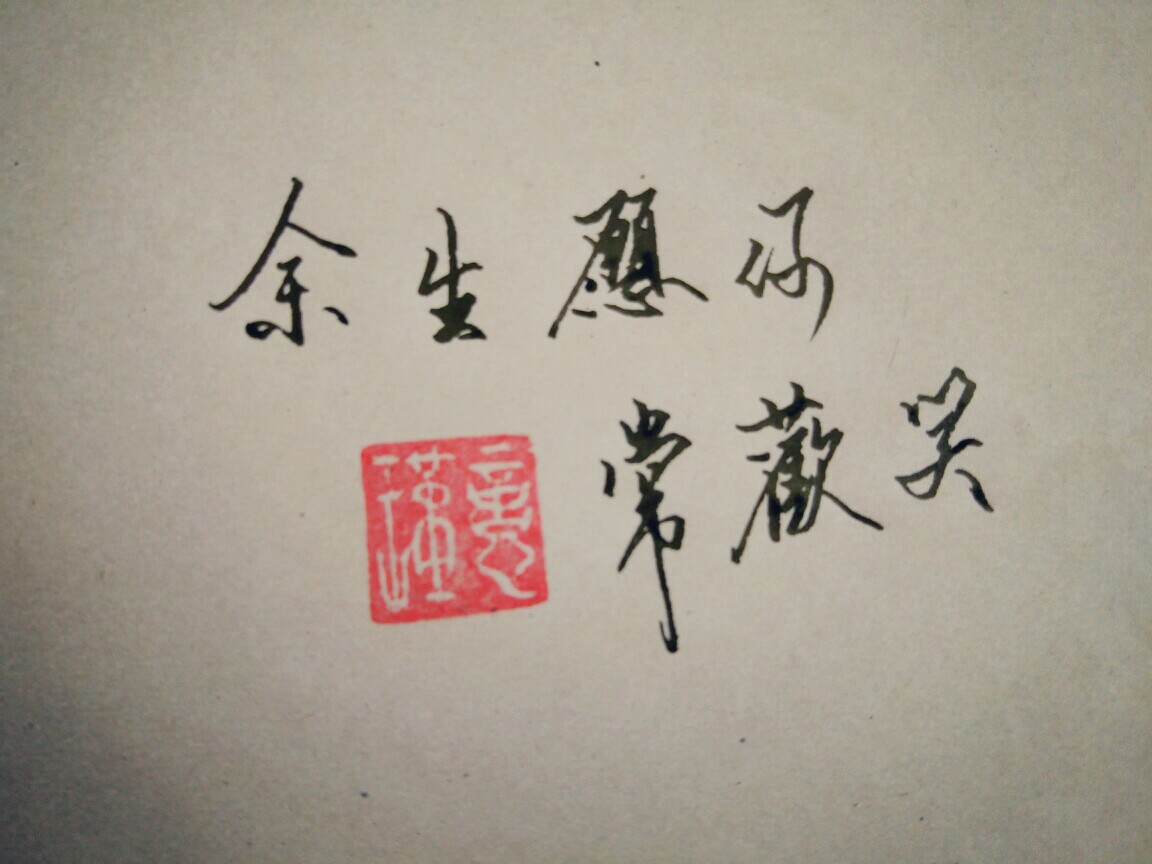 余生愿你
常歡笑